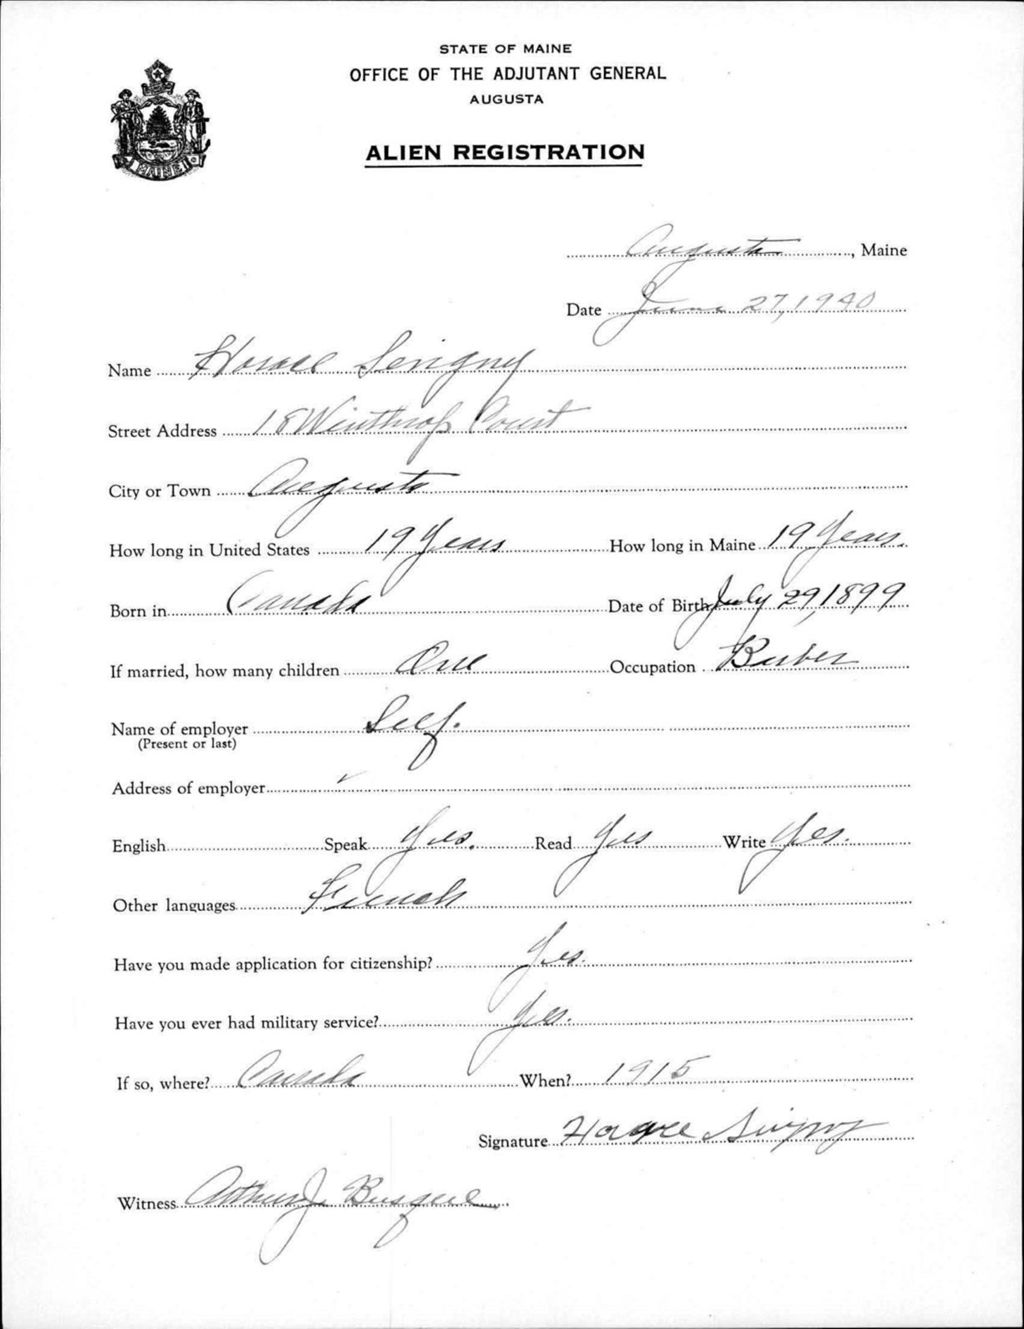 STATE OF MAINE
OFFICE OF THE ADJUTANT GENERAL
AUGUSTA
ALIEN REGISTRATION
MAINE
Augusta, Maine
Date June 27, 1940
Name Horace Serigny
Street Address 18 Winthrop Court
City or Town Augusta
How long in United States 19 Years How long in Maine 19 Years.
Born in Canada Date of Birth July 29, 1899
If married, how many children One Occupation Barber
Name of employer Self.
(Present or last)
Address of employer
English Speak Yes. Read Yes Write Yes.
Other languages French
Have you made application for citizenship? Yes.
Have you ever had military service? Yes.
If so, where? Canada When? 1915
Signature Horace
Witness Arthur J.